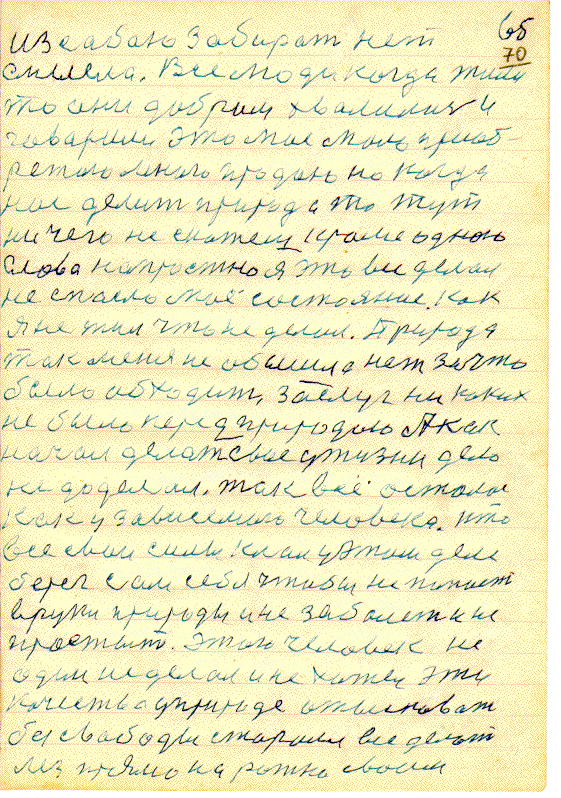 65
70
из сабою забират нет
смысла. Все люди когда жили
то они добром хвалилис и
говарили это мое мною приоб-
ретоно много продою но когда
нас делит природа то тут
ни чего не скажем кроме одною
слова напростно я это все делал
не спасло моё состояние. Как
я не жил что не делал. Природа
так меня не обошла нет за что
было обходит, заслуг ни каких
не было перед природою А как
начал делат свое у жизни дело
не доделал. так всё осталос
как у зависемого человека. что
все свои силы клал у этом деле
берег сам себя чтобы не попаст
в руки природы и не заболет и не
простыт. Этою человек не
один не делал и не хотел эти
качества у природе отысковат
без свободы старалс все делат
лез прямо на рожно своем